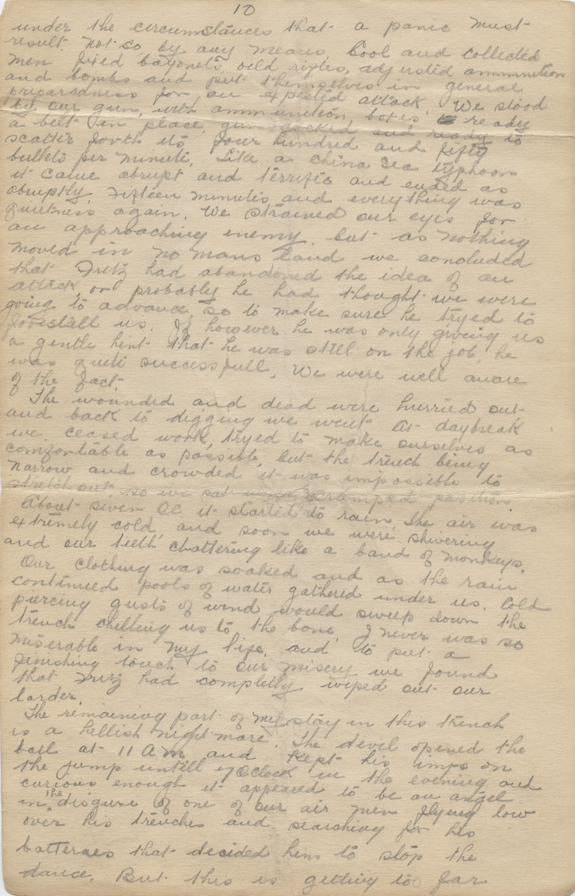 10
under the circumstances that a panic must
result. not so by any means, Cool and collected
men fixed bayonets oild rifles, adjusted ammunition
and bombs and put themselves in general
for an expected attack. We stood
by our gun, with ammunition, boxes ready
a belt in place, gun cocked and ready to
scatter forth its four hundred and fifty
bullets per minute, Like a china sea typhoon
it came abrupt and terrific and ended as
abruptly, Fifteen minutes and everything was
quietness again. We strained our eyes for
an approaching enemy. but as nothing
moved in no mans land we concluded
that Fritz had abandoned the idea of an
attack or probably he had thought we were
going to advance, so to make sure he tryed to
forestall us. If however he was only giving us
a gentle hint that he was still on the job, he
was quite successfull, We were well aware
of the fact.
The wounded and dead were hurried out
and back to digging we went. At daybreak
we ceased work, tryed to make ourselves as
comfortable as possible, but the trench being
narrow and crowded it was impossible to
stretch out so we sat cramped position.
About seven OC it started to rain, the air was
extremely cold and soon we were shivering
and our teeth chattering like a band of monkeys.
Our clothing was soaked and as the rain
continued pools of water gathered under us. Cold
piercing gusts of wind would sweep down the
trench chilling us to the bone, I never was so
miserable in my life, and to put a
finishing touch to our misery we found
that Fritz had completly wiped out our
larder.
The remaining part of my stay in this trench
is a hellish night mare. The devil opened the
ball at 11 AM and kept his imps on
the jump untill 7 Oclock in the evening and
curious enough it appeared to be an angel
in the disguise of one of our air men flying low
over his trenches and searching for his
batteries that decided him to stop the
dance. But this is getting too far